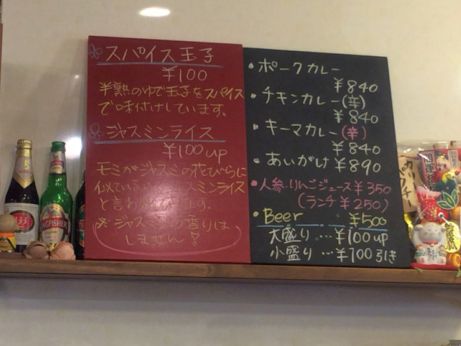 スパイス玉子
￥100
半熟のゆで玉子をスパイス
で味付けしています。
ジャスミンライス
￥100up
モミがジャスミの花びらに
似ている
ジャスミンライス
と言
※ジャスミンの香りは
しません!
・ポークカレー
￥840
・チキンカレー(辛)
￥840
・キーマカレー(辛)
￥840
・あいがけ ￥890
・人参りんごジュース ￥350
(ランチ ￥250)
・Beer ￥500
大盛り…￥100up
小盛り…￥100引き